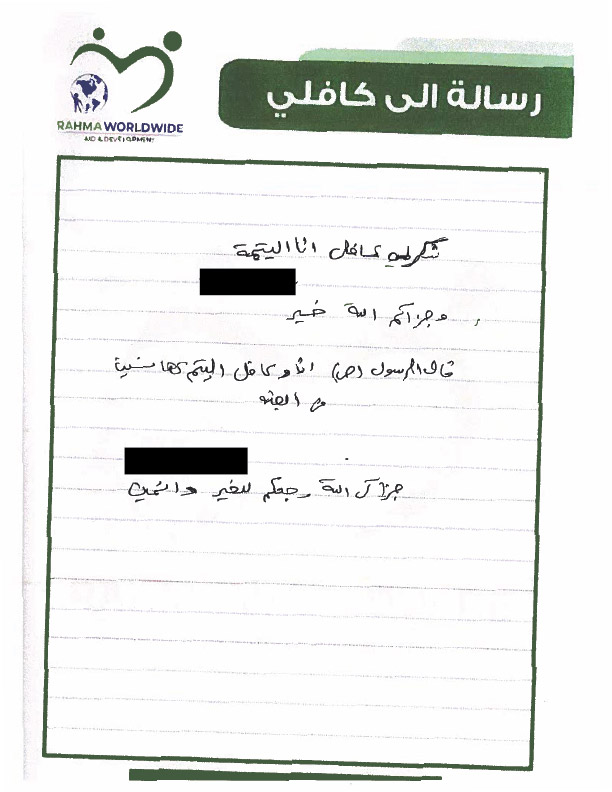 RAHMA WORLDWIDE
AID & DEVELOPMENT
رسالة الى كافلي
شكر لكافل انا اليتيمة
وجزاكم الله خير
قال الرسول (ص) انا و كافل اليتيم كهاتين
في الجنه
جزاك الله وجعلكم للخير